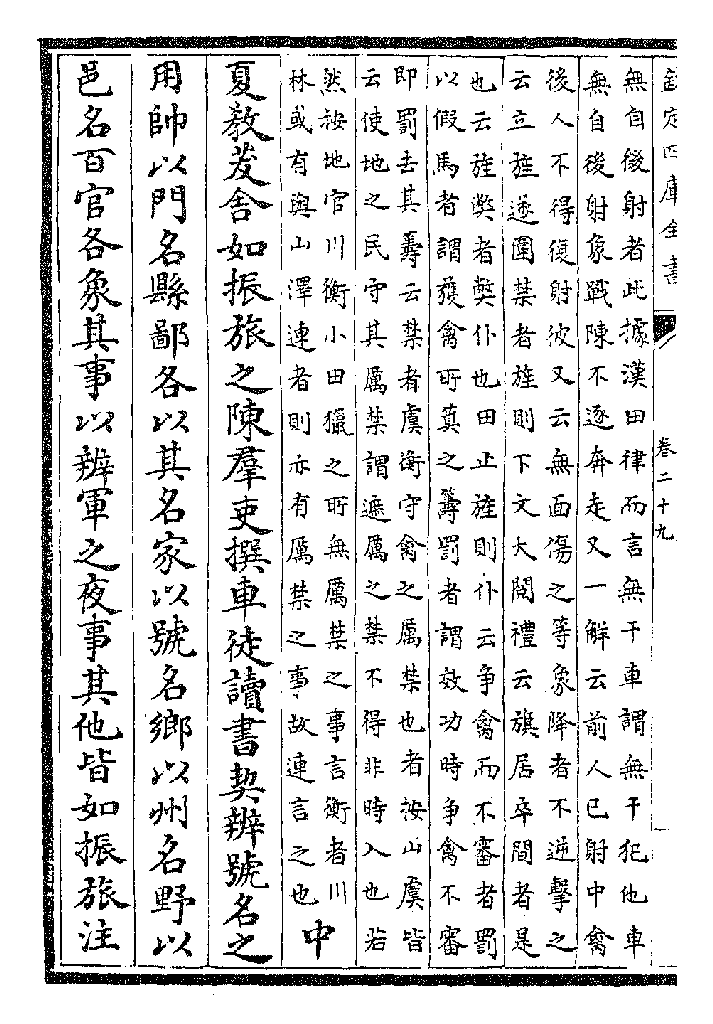 欽定四庫全書
卷二十九
無自後射者此據漢田律而言無干車謂無干犯他車
無自後射象戰陳不逐奔走又一解云前人已射中禽
後人不得復射彼又云無面傷之等象降者不逆擊之
云立旌遂圍禁者旌則下文大閱禮云旗居卒間者是
也云旌獘者獘仆也田止旌則仆云争禽而不審者罰
以假馬者謂獲禽所算之籌罰者謂效功時争禽不審
即罰去其籌云禁者虞衡守禽之厲禁也者按山虞皆
云使地之民守其厲禁謂遮厲之禁不得非時入也若
然按地官川衡小田獵之所無厲禁之事言衡者川
林或有與山澤連者則亦有厲禁之事故連言之也
中
夏教茇舍如振旅之陳羣吏撰車徒讀書契辨號名之
用帥以門名縣鄙各以其名家以號名鄉以州名野以
邑名百官各象其事以辨軍之夜事其他皆如振旅注